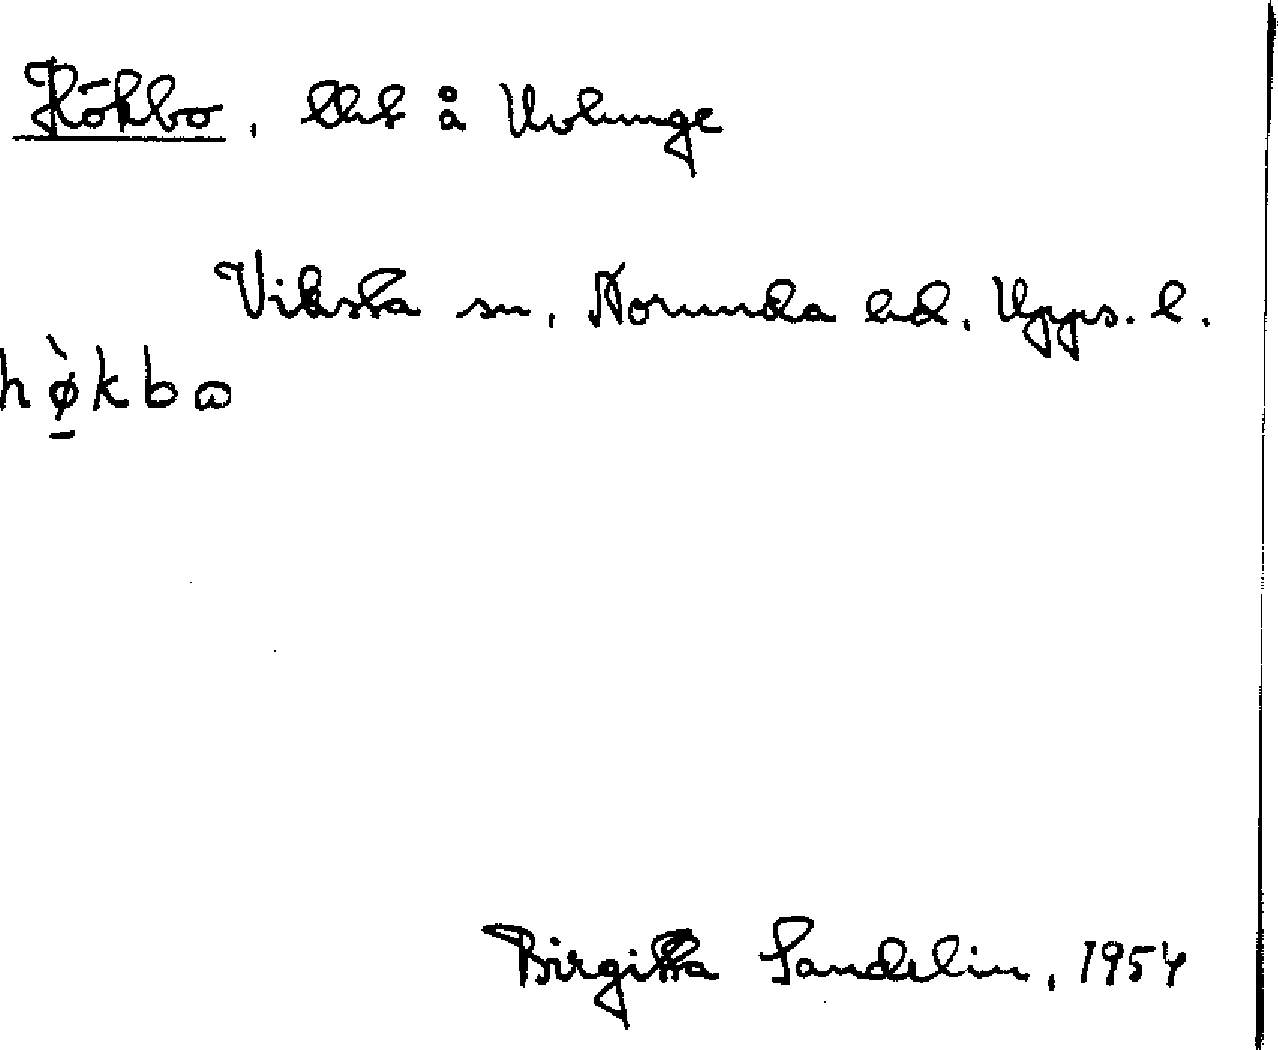 Hökbo, lht å Kolunge
Viksta sn, Norunda hd, Upps. l.
hø̠̀kbɷ
Birgitta Sandelin, 1954